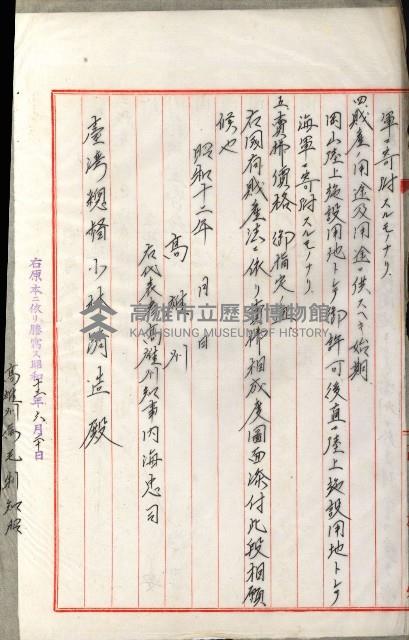 軍ニ寄附スルモノナリ
四、財産ノ用途及用途ニ供スベキ始期
岡山陸上施設用地トシテ御許可後直ニ陸上施設用地トシテ
海軍ニ寄附スルモノナリ
五、賣拂價格 御指定
右國有財產法ニ依リ賣拂相成度圖面添付此段相願
候也
昭和十二年 月 日
高雄州
右代表者高雄州知事內海忠司
臺灣總督小林躋造殿
右原本ニ依リ謄寫ス昭和十二年六月 日
高雄州屬毛利
高雄市立歷史博物館
KAOHSIUNG MUSEUM OF HISTORY